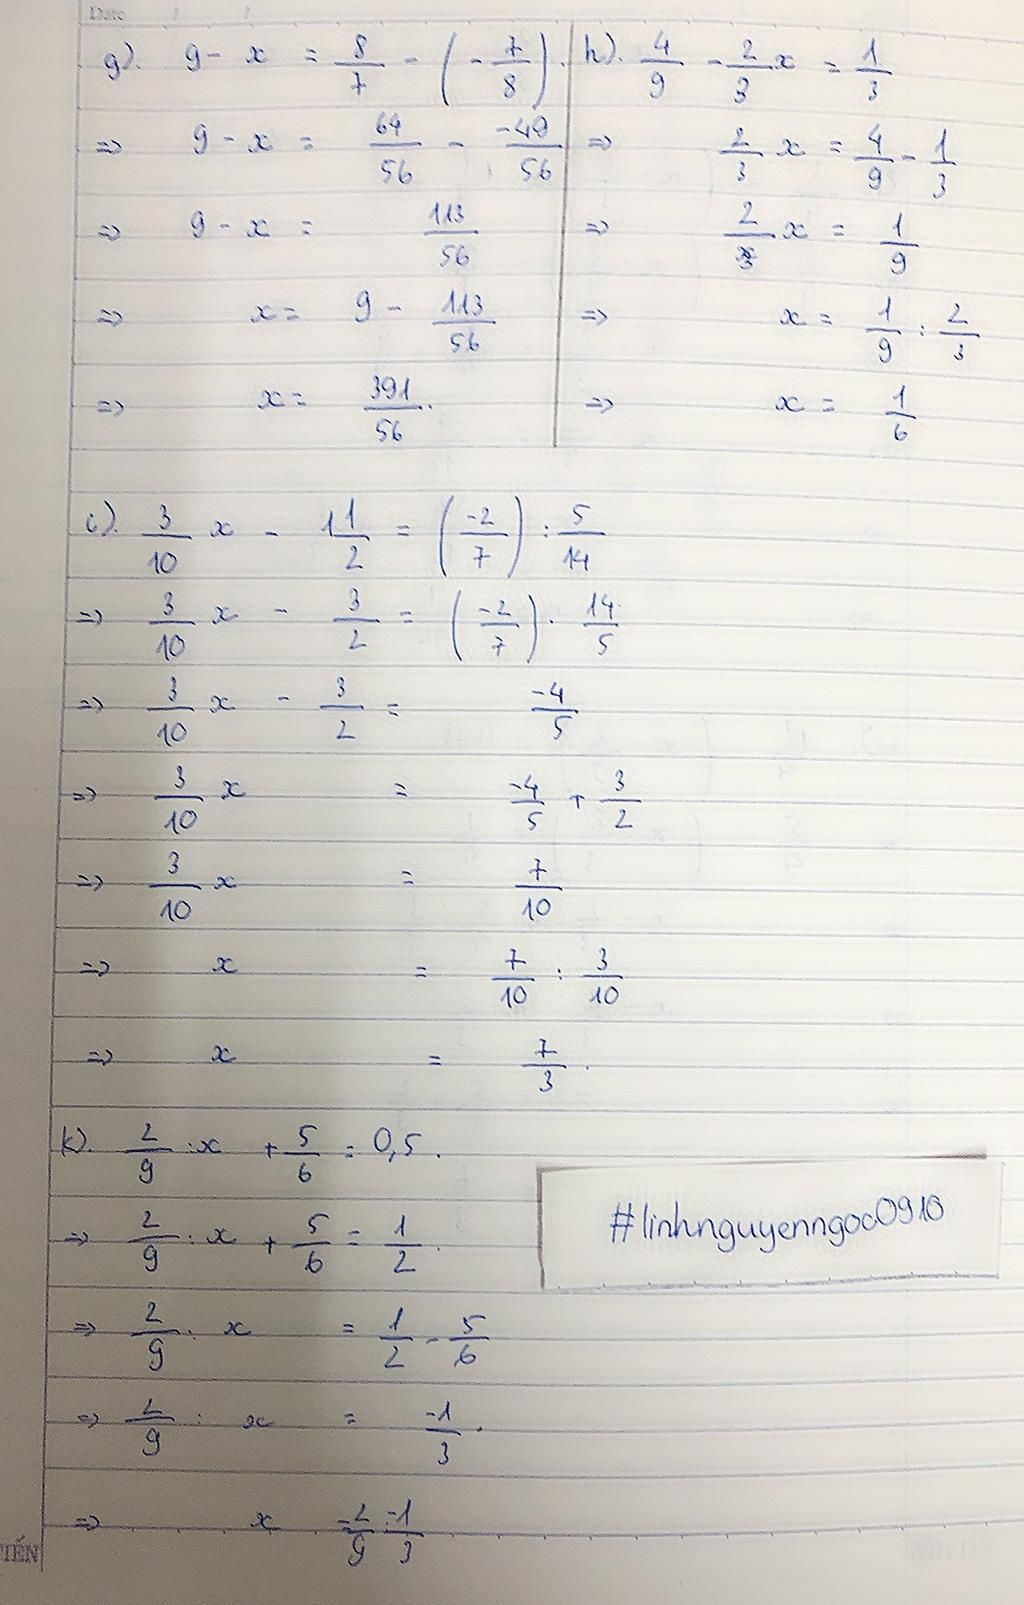 Date
g). 9 - x = 8/7 - (-7/8).
=> 9 - x = 64/56 - -49/56
=> 9 - x = 113/56
=> x = 9 - 113/56
=> x = 391/56.
h). 4/9 - 2/3 x = 1/3
=> 2/3 x = 4/9 - 1/3
=> 2/3 x = 1/9
=> x = 1/9 : 2/3
=> x = 1/6
i). 3/10 x - 1 1/2 = (-2/7) : 5/14
=> 3/10 x - 3/2 = (-2/7) . 14/5
=> 3/10 x - 3/2 = -4/5
=> 3/10 x = -4/5 + 3/2
=> 3/10 x = 7/10
=> x = 7/10 : 3/10
=> x = 7/3.
k). 2/9 : x + 5/6 = 0,5.
=> 2/9 : x + 5/6 = 1/2.
=> 2/9 : x = 1/2 - 5/6
=> 2/9 : x = -1/3.
=> x = 2/9 : -1/3
#linhnguyenngoc0910
TIẾN